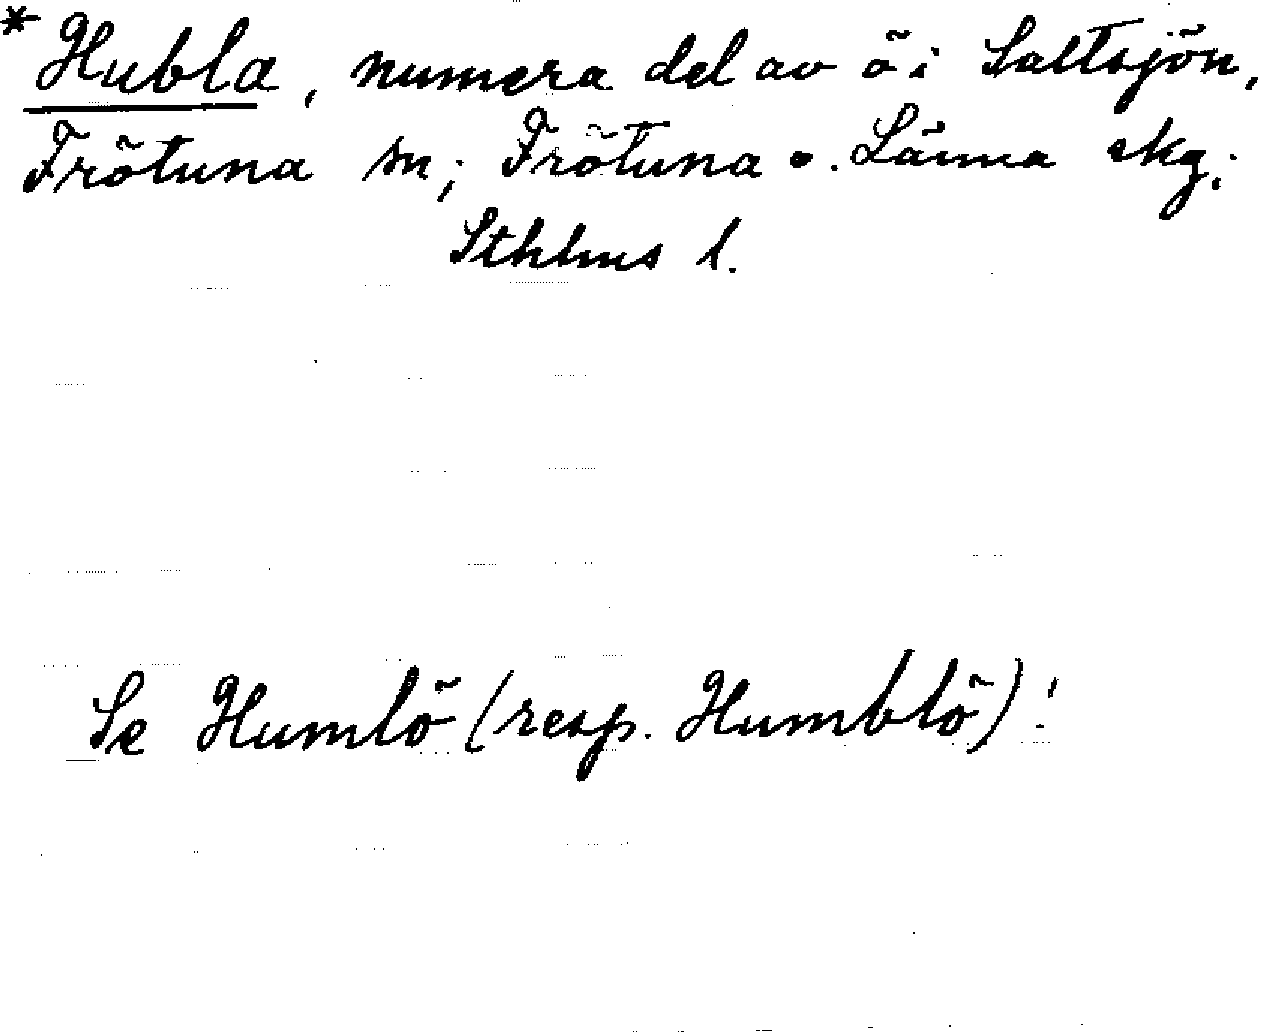 * Hubla, numera del av ö i Saltsjön,
Frötuna sn; Frötuna o. Länna skg;
Sthlms l.
Se Humlö (resp. Humblö)!